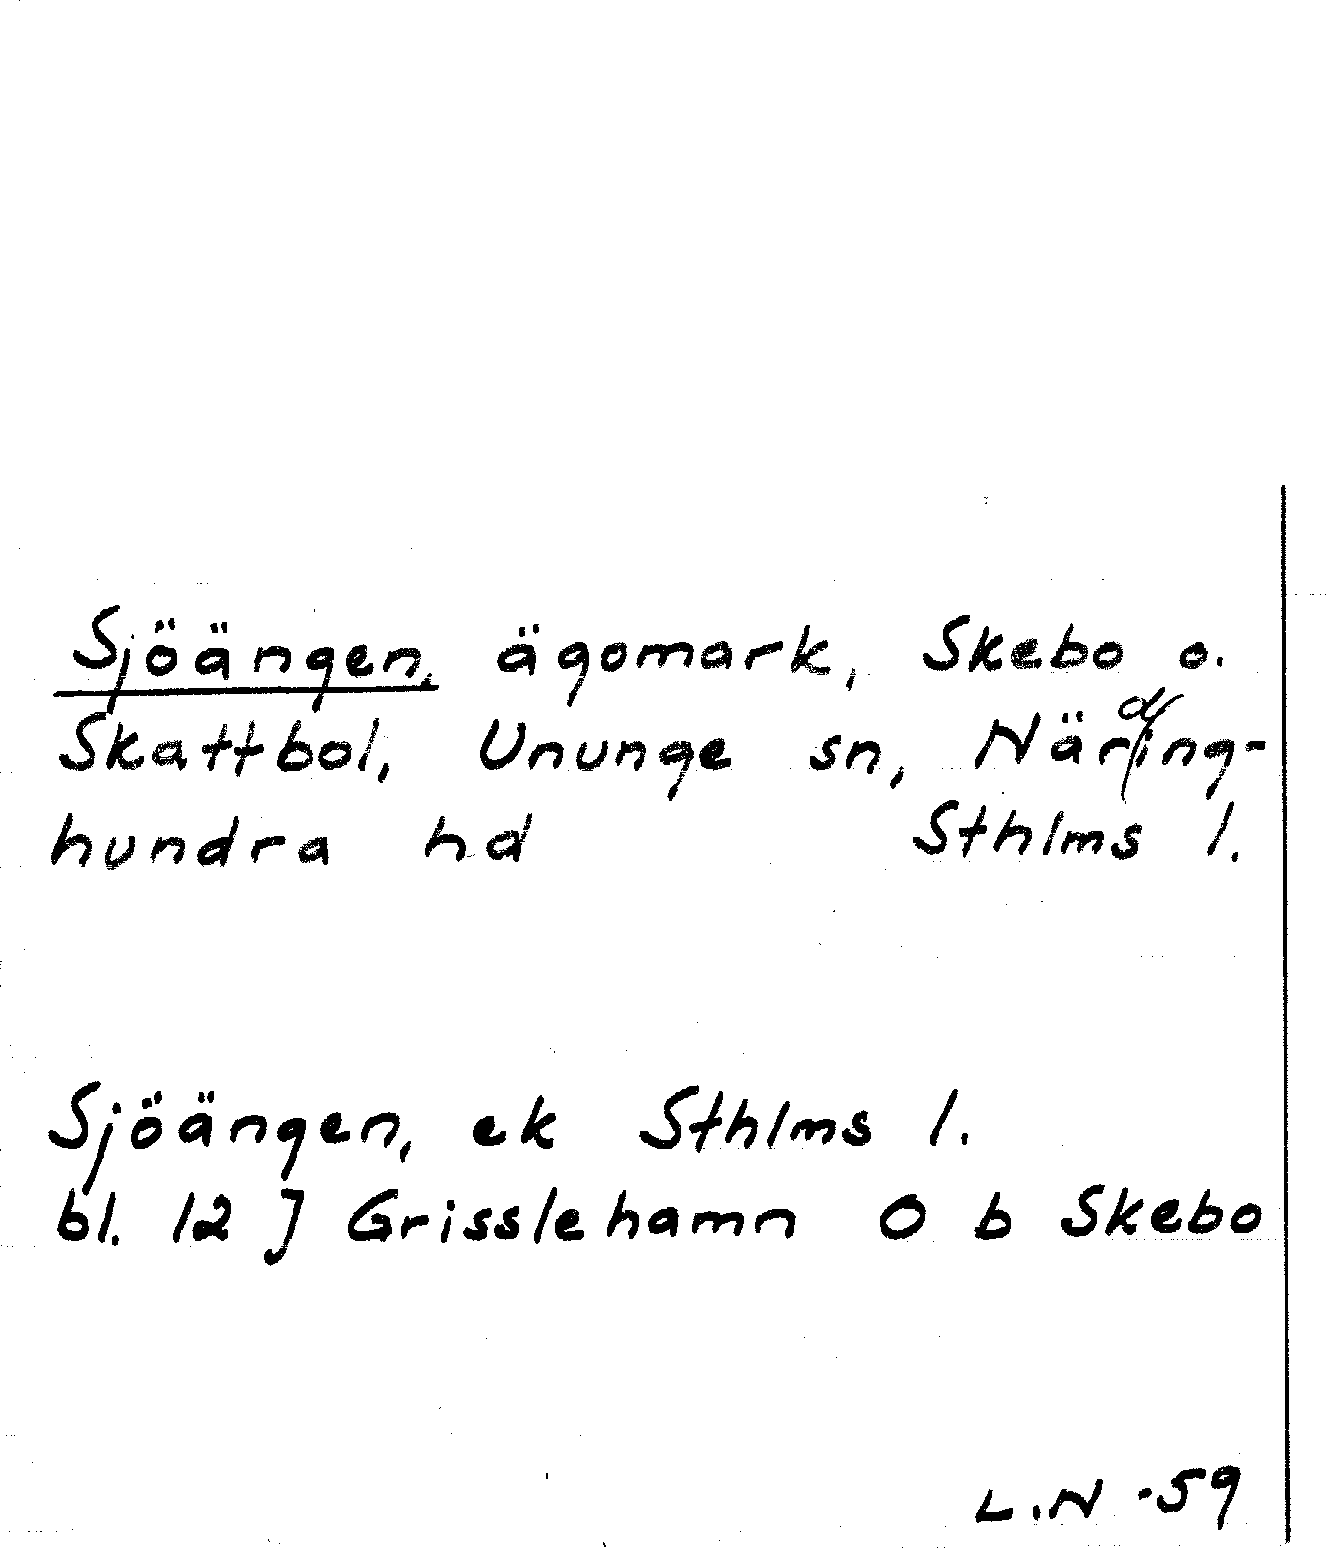 Sjöängen, ägomark, Skebo o.
Skattbol, Ununge sn, Närding-
hundra hd Sthlms l.
Sjöängen, ek Sthlms l.
bl. 12 J Grisslehamn O b Skebo
L.N -59